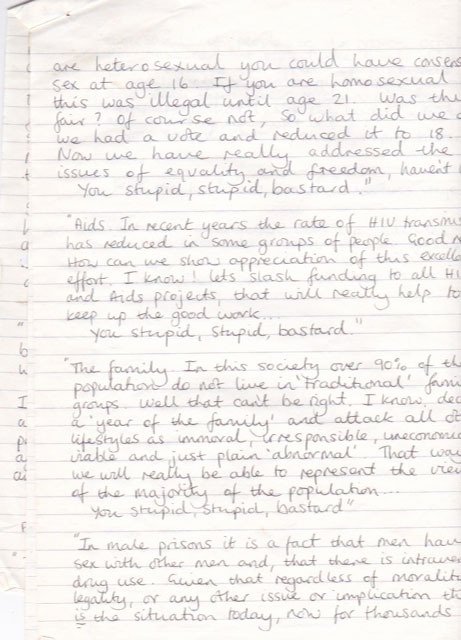 are heterosexual you could have consens
sex at age 16. If you are homosexual
this was illegal until age 21. Was th
fair? Of course not, so what did we
we had a vote and reduced it to 18.
Now we have really addressed the
issues of equality and freedom, haven't
You stupid, stupid, bastard."
"Aids. In recent years the rate of HIV transmis
has reduced in some groups of people. Good
How can we show appreciation of this excelle
effort. I know! lets slash funding to all HI
and Aids projects, that will really help to
keep up the good work...
You stupid, stupid, bastard."
"The family. In this society over 90% of th
population do not live in 'Traditional' fami
groups. Well that can't be right. I know, dec
a 'year of the family' and attack all ot
lifestyles as immoral, irresponsible, uneconomic
viable and just plain 'abnormal'. That way
we will really be able to represent the view
of the majority of the population...
You stupid, stupid, bastard"
"In male prisons it is a fact that men hav
sex with other men and, that there is intrave
drug use. Given that regardless of morality
legality, or any other issue or implication th
is the situation today, now for thousands